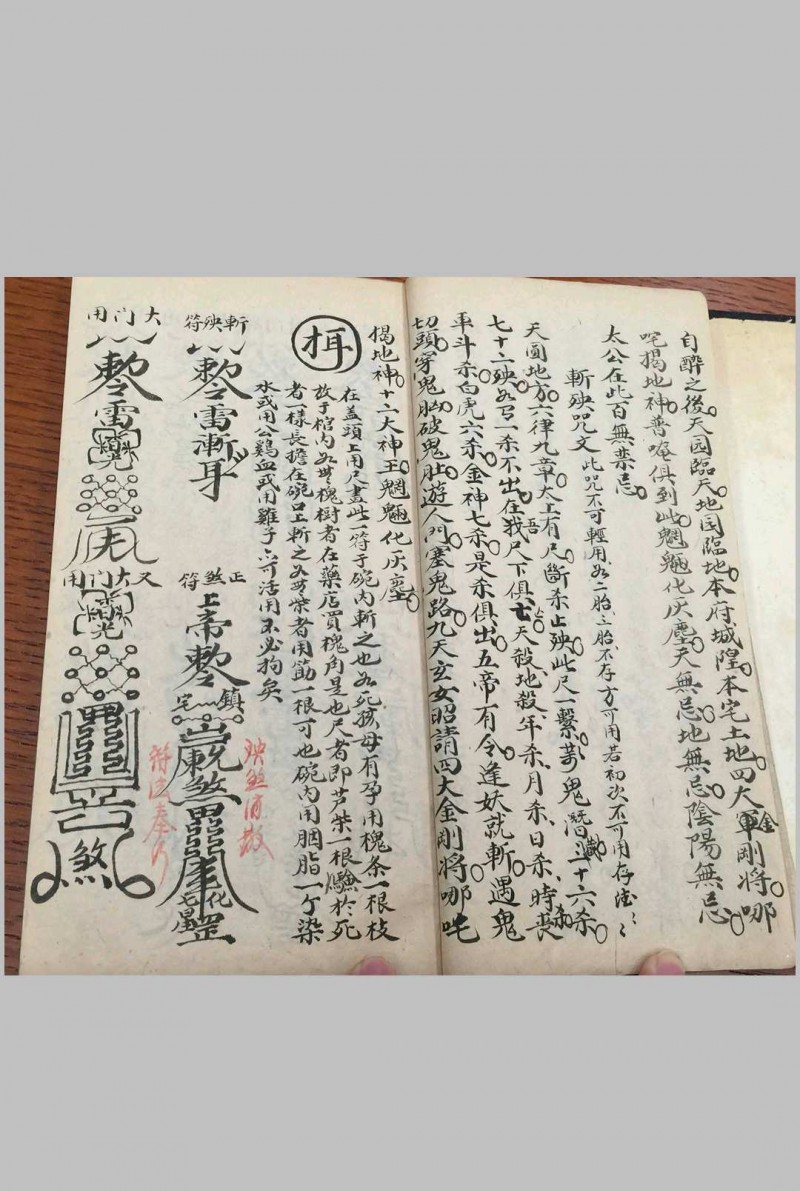 自醉之後天园臨天地园臨地本府城隍本宅土地四大金剛將哪
咤揭地神普唵俱到此魍魎化灰塵天無忌地無忌陰陽無忌
太公在此百無禁忌
斬殃咒文此咒不可輕用如二胎三胎不存方可用若初次不可用存
天圓地方六律九章太上有尺斷杀止殃此尺一繫萬鬼潛藏三十六杀
七十二殃如丐一杀不出在吾尺下俱亡天殺地殺年杀月杀日杀時杀
車斗杀白虎六杀金神七杀是杀俱出五帝有令逢妖就斬遇鬼
切頭穿鬼胸破鬼肚遊人門塞鬼路九天玄女昭請四大金剛將哪吒
揭地神十二大神王魍魎化灰塵
在盖頭上用尺畫此一符于碗内斬之也如死孩母有孕用槐条一根枝
放于棺内如無槐樹者在藥店買槐角是也尺者即芦柴一根騐於死
者一樣長擔在碗口上斬之如無柴者用筋一根可也碗内用胭脂一个染
水或用公鷄血或用雞子亦可活用不必拘矣
斬殃符
敕令雷漸耳
正煞符
上帝敕令
鎮宅
煞
罡
殃煞消散
符法奉行
大门用
敕令雷
又大门用
煞